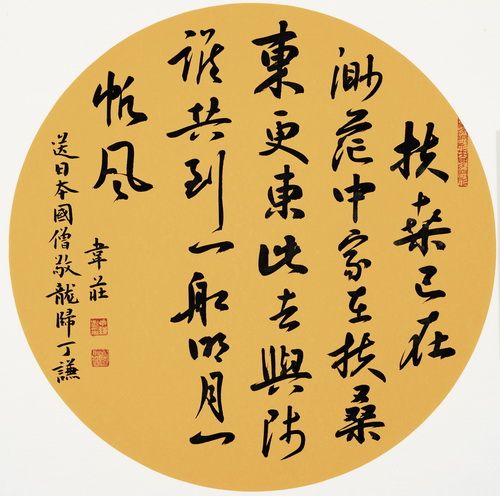 扶桑已在
渺茫中家在扶桑
東更東此去與師
誰共到一船明月一
帆風
韋莊
送日本國僧敬龍歸丁謙